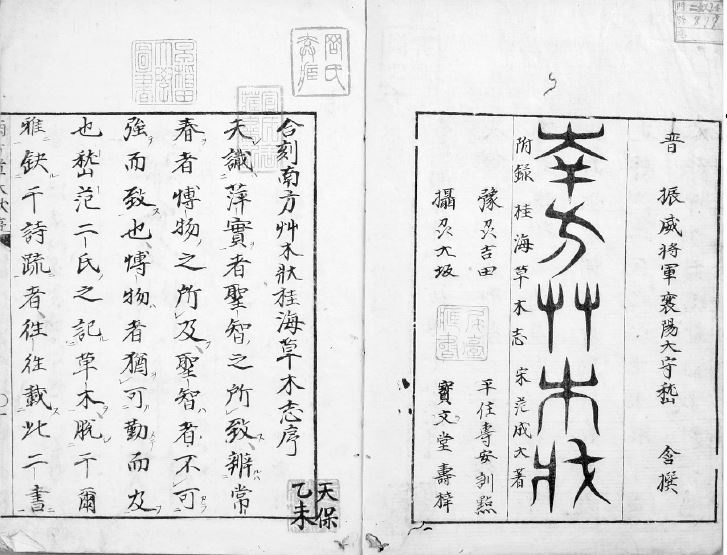 晋 振威将軍襄陽大守嵆 含撰
南方艸木状
附録 桂海草木志 宋范成大著
豫州吉田 平住專安訓點
攝州大坂 寶文堂壽梓
合刻南方艸木狀桂海草木志序
夫識萍實者聖智之所致辨常
春者博物之所及聖智者不可
強而致也博物者猶可勤而及
也嵆范二氏之記草木脫于爾
雅缺于詩疏者往往載此二書
天保
乙未